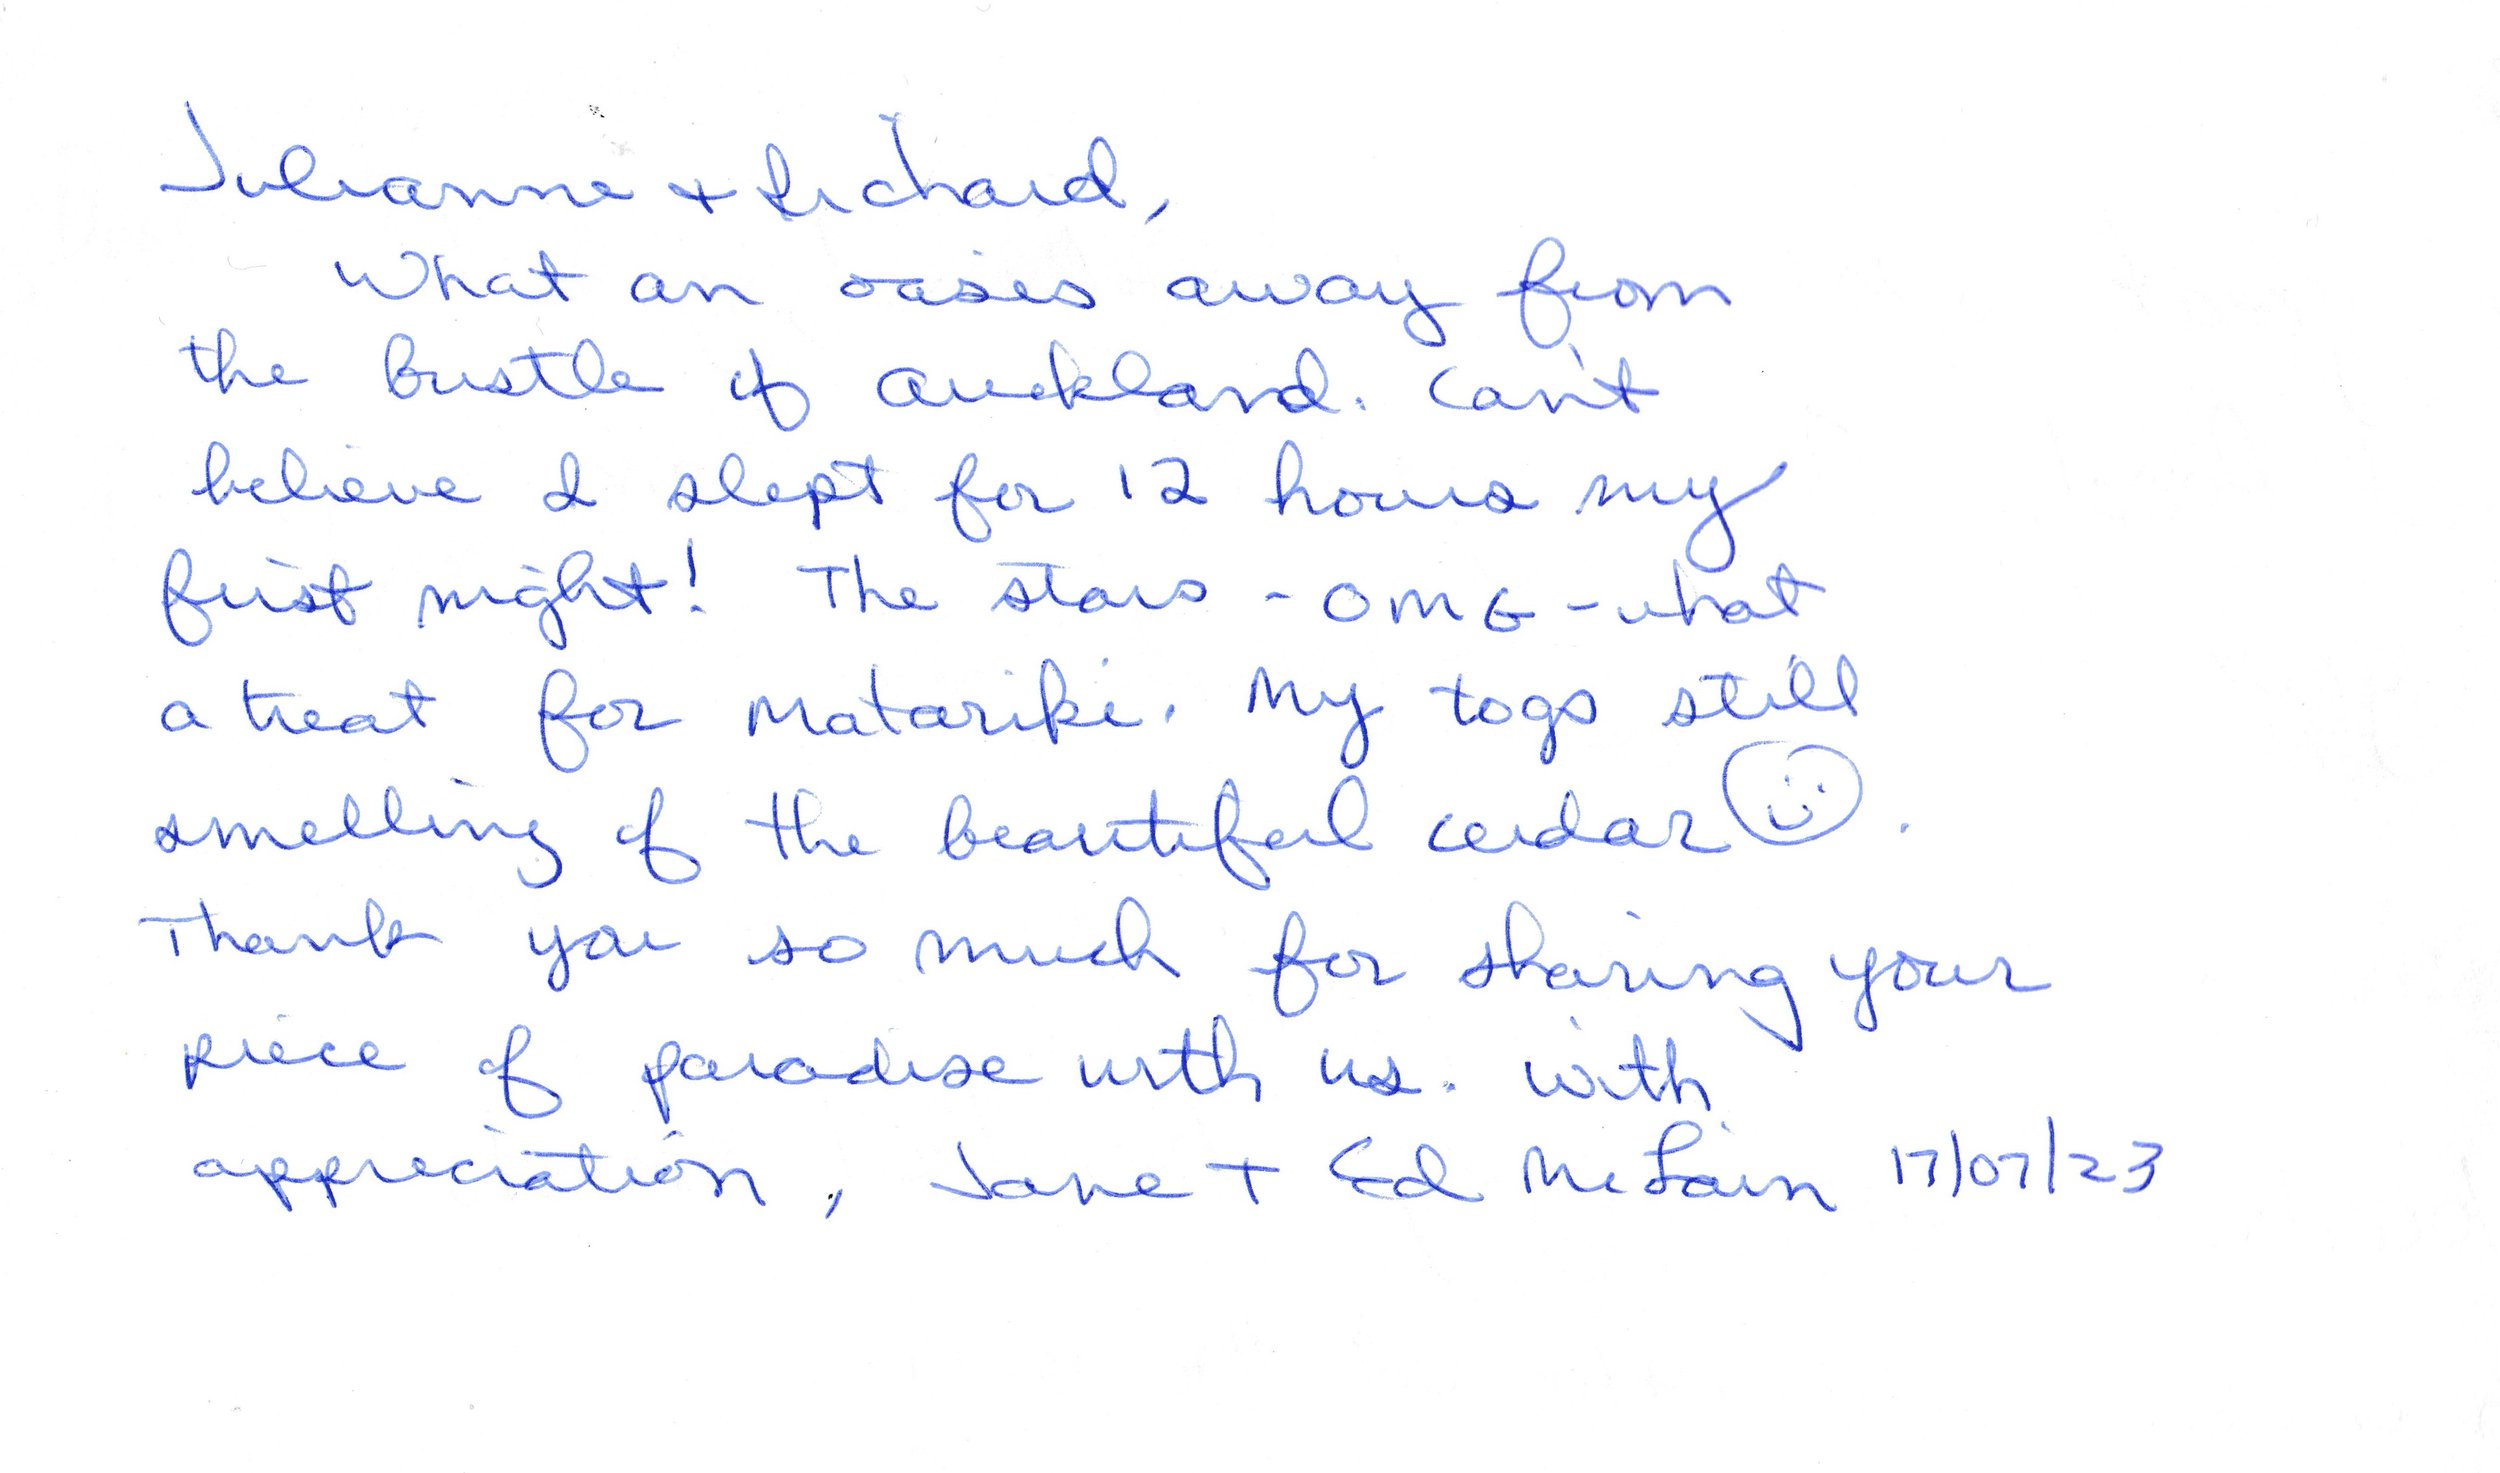 Julianne + Richard,
What an oasis away from
the bustle of Auckland. Can't
believe I slept for 12 hours my
first night! The stars - OMG - what
a treat for Matariki. My togs still
smelling of the beautiful cedar ☺.
Thank you so much for sharing your
piece of paradise with us. With
appreciation, Jane + Ed McLain 17/07/23